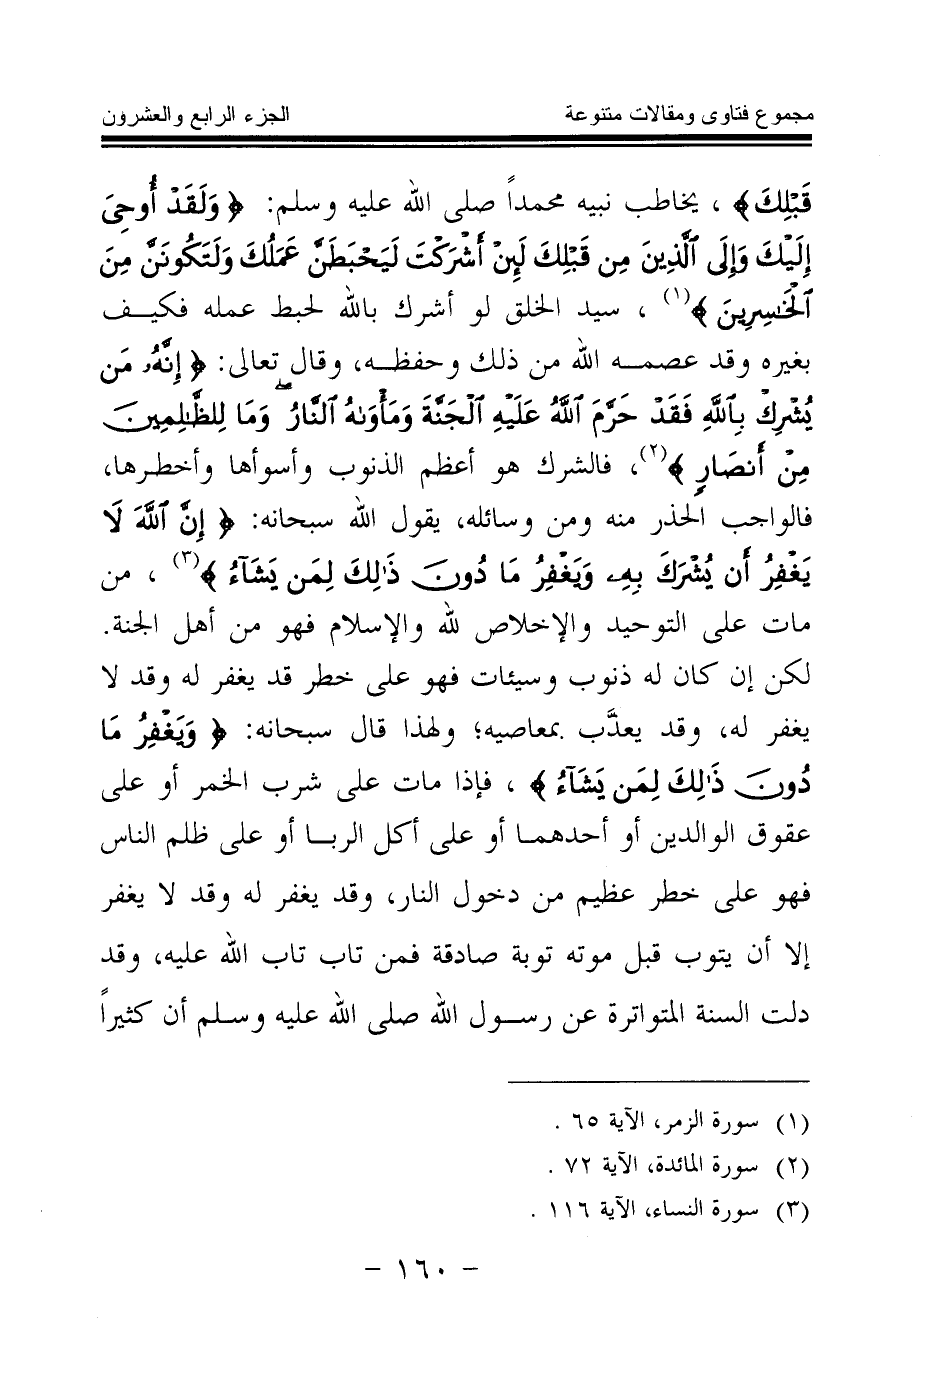 مجموع فتاوى ومقالات متنوعة الجزء الرابع والعشرون
قَبْلِكَ﴾ ، يخاطب نبيه محمداً صلى الله عليه وسلم: ﴿ وَلَقَدْ أُوحِىَ
إِلَيْكَ وَإِلَى ٱلَّذِينَ مِن قَبْلِكَ لَئِنْ أَشْرَكْتَ لَيَحْبَطَنَّ عَمَلُكَ وَلَتَكُونَنَّ مِنَ
ٱلْخَـٰسِرِينَ ﴾(١) ، سيد الخلق لو أشرك بالله لحبط عمله فكيـف
بغيره وقد عصمـه الله من ذلك وحفظـه، وقال تعالى: ﴿ إِنَّهُۥ مَن
يُشْرِكْ بِٱللَّهِ فَقَدْ حَرَّمَ ٱللَّهُ عَلَيْهِ ٱلْجَنَّةَ وَمَأْوَىٰهُ ٱلنَّارُ ۖ وَمَا لِلظَّـٰلِمِينَ
مِنْ أَنصَارٍ ﴾(٢)، فالشرك هو أعظم الذنوب وأسوأها وأخطرها،
فالواجب الحذر منه ومن وسائله، يقول الله سبحانه: ﴿ إِنَّ ٱللَّهَ لَا
يَغْفِرُ أَن يُشْرَكَ بِهِۦ وَيَغْفِرُ مَا دُونَ ذَٰلِكَ لِمَن يَشَآءُ ۚ ﴾(٣) ، من
مات على التوحيد والإخلاص لله والإسلام فهو من أهل الجنة.
لكن إن كان له ذنوب وسيئات فهو على خطر قد يغفر له وقد لا
يغفر له، وقد يعذَّب بمعاصيه؛ ولهذا قال سبحانه: ﴿ وَيَغْفِرُ مَا
دُونَ ذَٰلِكَ لِمَن يَشَآءُ ﴾ ، فإذا مات على شرب الخمر أو على
عقوق الوالدين أو أحدهمـا أو على أكل الربـا أو على ظلم الناس
فهو على خطر عظيم من دخول النار، وقد يغفر له وقد لا يغفر
إلا أن يتوب قبل موته توبة صادقة فمن تاب تاب الله عليه، وقد
دلت السنة المتواترة عن رسـول الله صلى الله عليه وسـلم أن كثيراً
(١) سورة الزمر، الآية ٦٥ .
(٢) سورة المائدة، الآية ٧٢ .
(٣) سورة النساء، الآية ١١٦ .
- ١٦٠ -